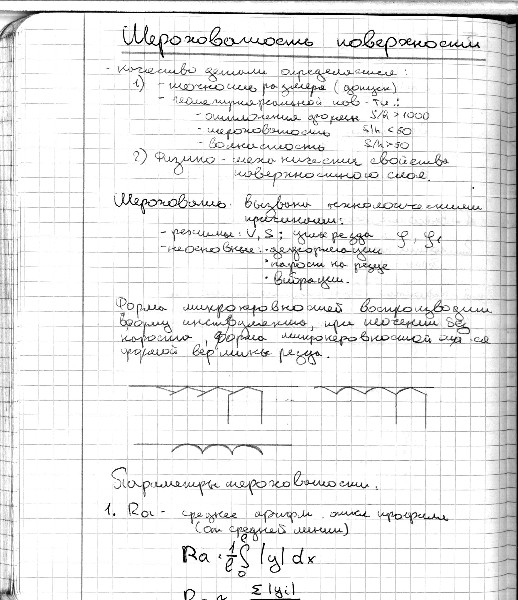 Шероховатость поверхности
- качество детали определяется:
1) - точность размера (допуск)
- геометрической пов-ти:
- отклонения формы S/h > 1000
- шероховатость S/h < 50
- волнистость S/h > 50
2) Физико-механические свойства
поверхностного слоя.
Шероховато. вызвана технологическими
причинами:
- режимы: V, S; углы резца φ, φ₁
- неосновные: · деформации
· нарост на резце
· вибрации.
Форма микронеровностей воспроизводит
форму инструмента, при точении без
нароста, форма микронеровностей
формой вершины резца.
Параметры шероховатости.
1. Ra - среднее арифм. откл профиля
(от средней линии)
Ra = 1/l ∫₀ˡ |y| dx
Σ|yi|